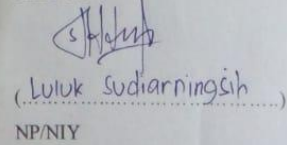 (Luluk Sudiarningsih)
NP/NIY